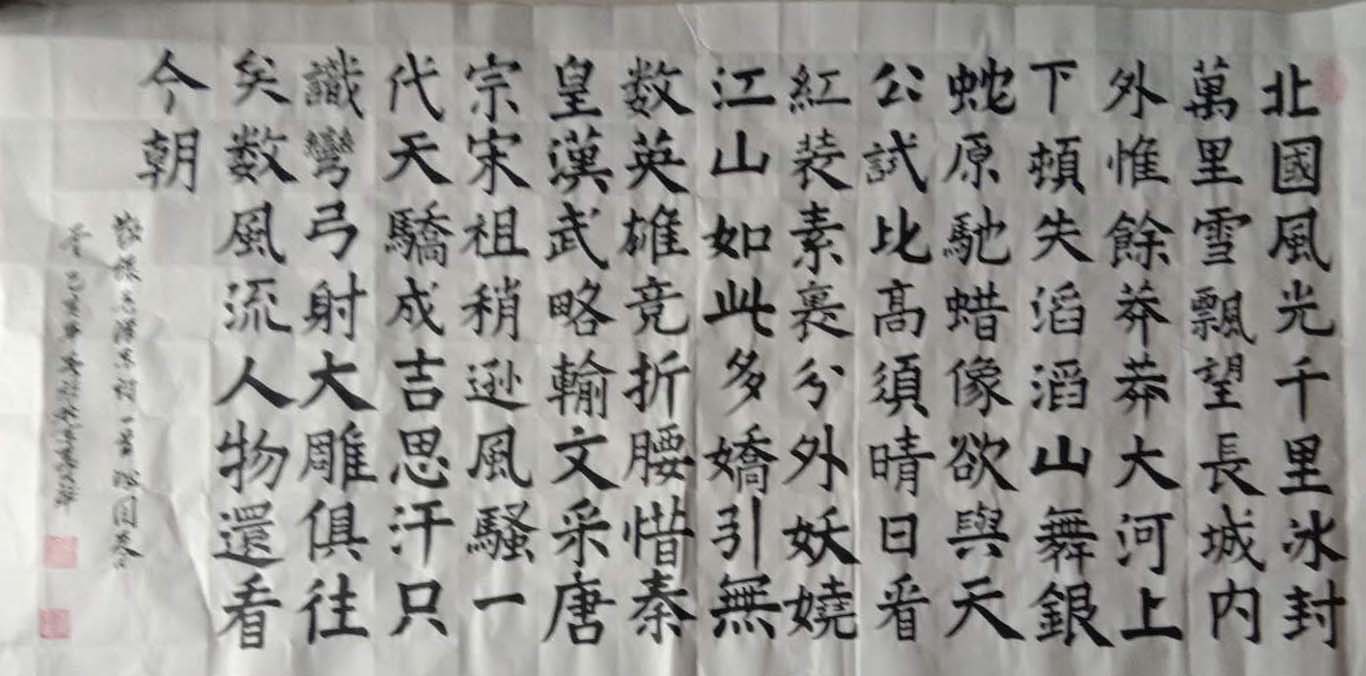 北國風光千里冰封
萬里雪飄望長城内
外惟餘莽莽大河上
下頓失滔滔山舞銀
蛇原馳蜡像欲與天
公試比高須晴日看
紅装素裹分外妖嬈
江山如此多嬌引無
数英雄竞折腰惜秦
皇漢武略輸文采唐
宗宋祖稍逊風騷一
代天驕成吉思汗只
識彎弓射大雕俱往
矣数風流人物還看
今朝
敬録毛澤東詞一首沁园春
于己亥年